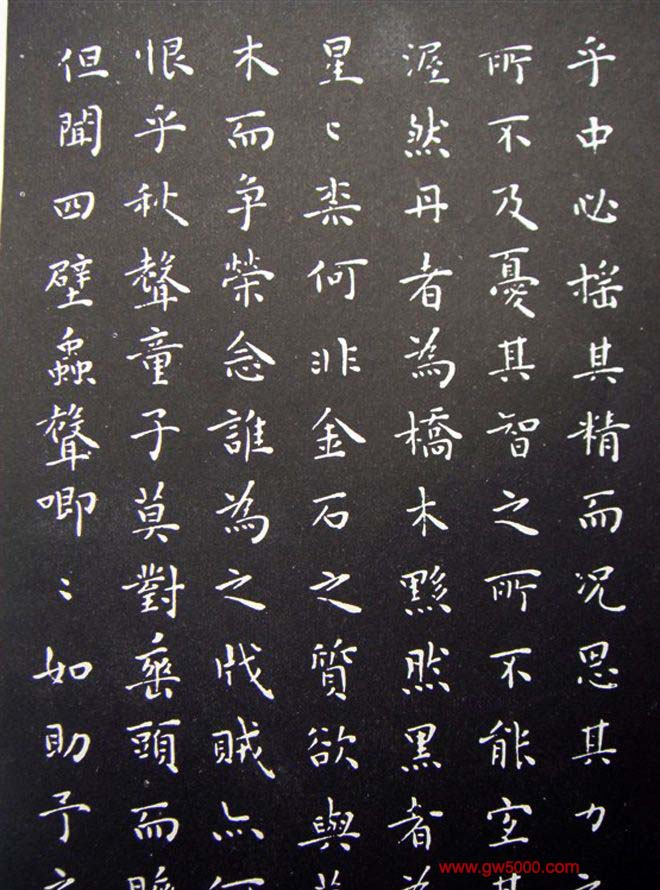 乎中必摇其精而况思其力之
所不及憂其智之所不能宜其
渥然丹者為橋木黟然黑者為
星〻柰何非金石之質欲與草
木而争榮念誰為之戕賊亦何
恨乎秋聲童子莫對垂頭而睡
但聞四壁蟲聲唧〻如助予之
www.gw5000.com